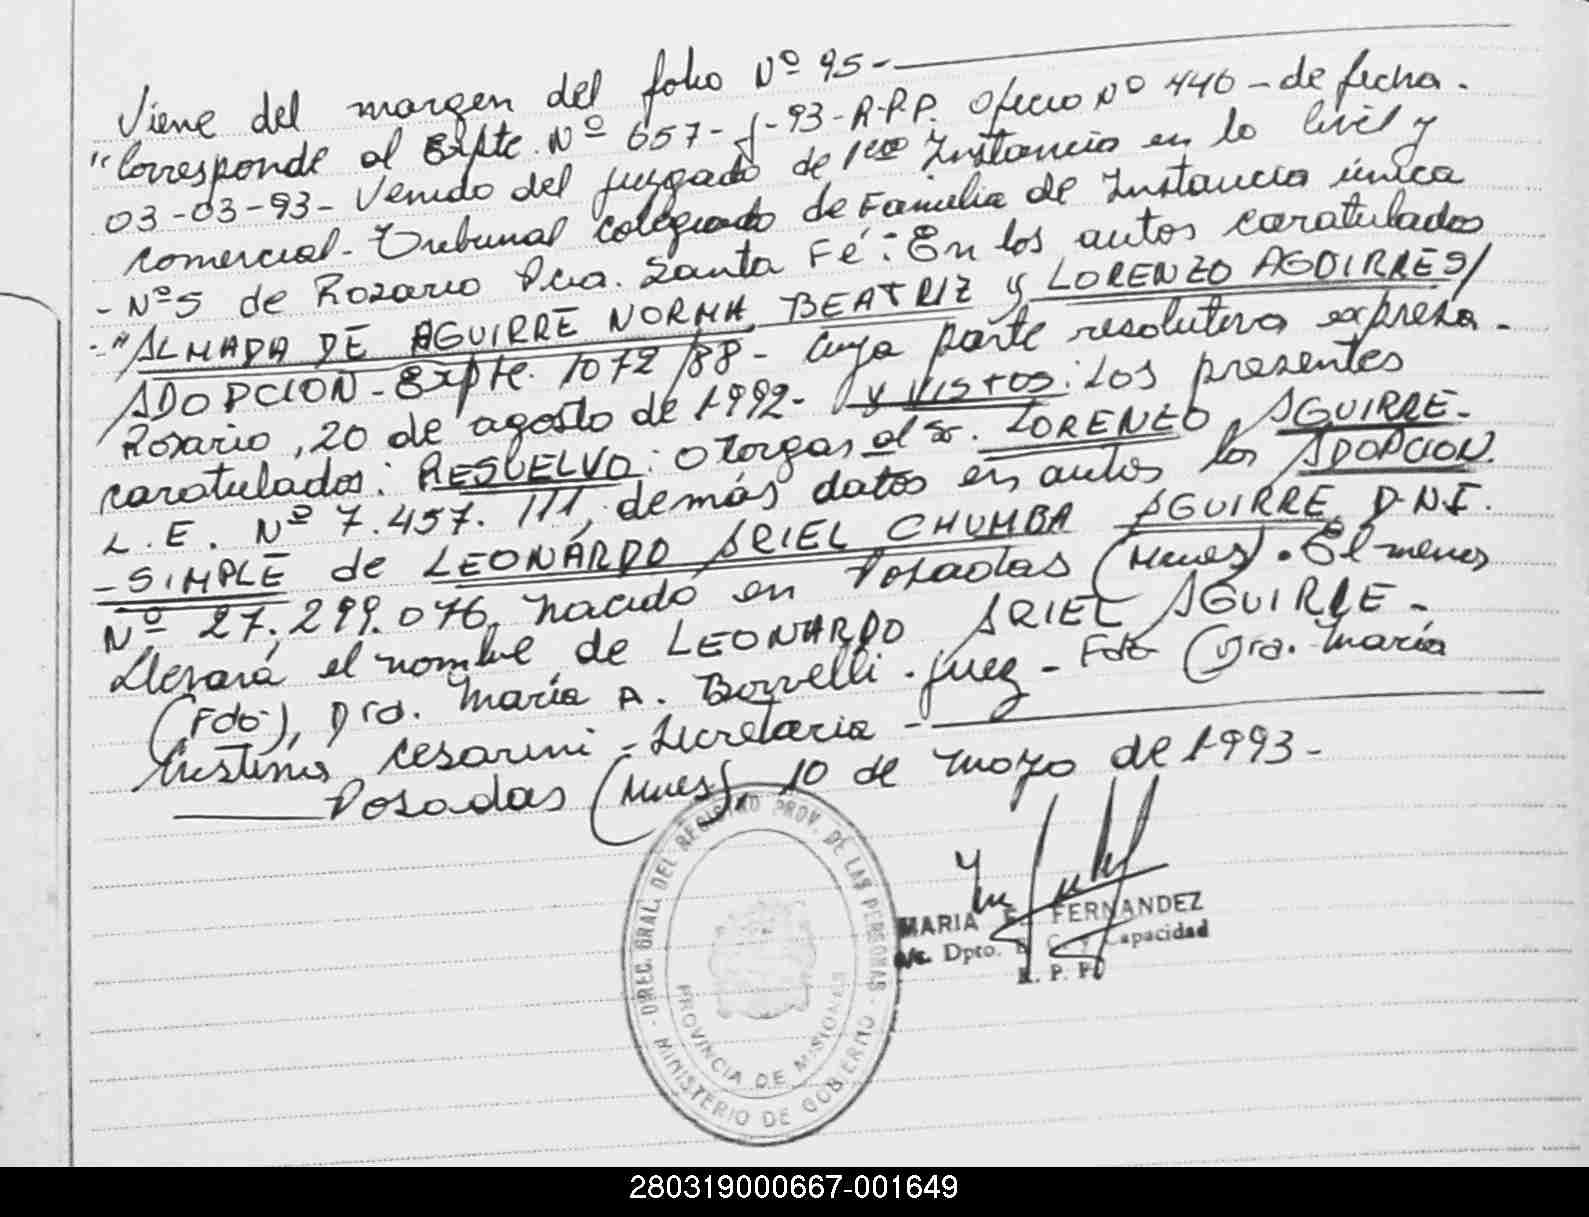 Viene del margen del folio Nº 95-
"Corresponde al Expte. Nº 657-J-93-R.P.P. Oficio Nº 446-de fecha.
03-03-93- Venido del juzgado de 1era Instancia en lo Civil y
comercial- Tribunal colegiado de Familia de Instancia única
-Nº5 de Rosario Pcia. Santa Fé: En los autos caratulados
-"ALMADA DE AGUIRRE NORMA BEATRIZ y LORENZO AGUIRRE S/
ADOPCION-Expte. 1072/88- cuya parte resolutiva expresa-
Rosario, 20 de agosto de 1992- y VISTOS: Los presentes
caratulados: RESUELVO: Otorgar al Sr. LORENZO AGUIRRE-
L.E. Nº 7.457.111, demás datos en autos la ADOPCION
-SIMPLE de LEONARDO ARIEL CHUMBA AGUIRRE D.N.I.
Nº 27.299.076, nacido en Posadas (Mnes). El menor
Llevará el nombre de LEONARDO ARIEL AGUIRRE-
(Fdo), Dra. María A. Borvelli. juez- Fdo (Dra. María
Cristina Cesarini-Secretaria-
Posadas (Mnes), 10 de mayo de 1993-
DIREC. GRAL. DEL REGISTRO PROV. DE LAS PERSONAS
PROVINCIA DE MISIONES
MINISTERIO DE GOBIERNO
MARIA E. FERNANDEZ
a/c. Dpto. E. C. y Capacidad
R. P. P.
280319000667-001649